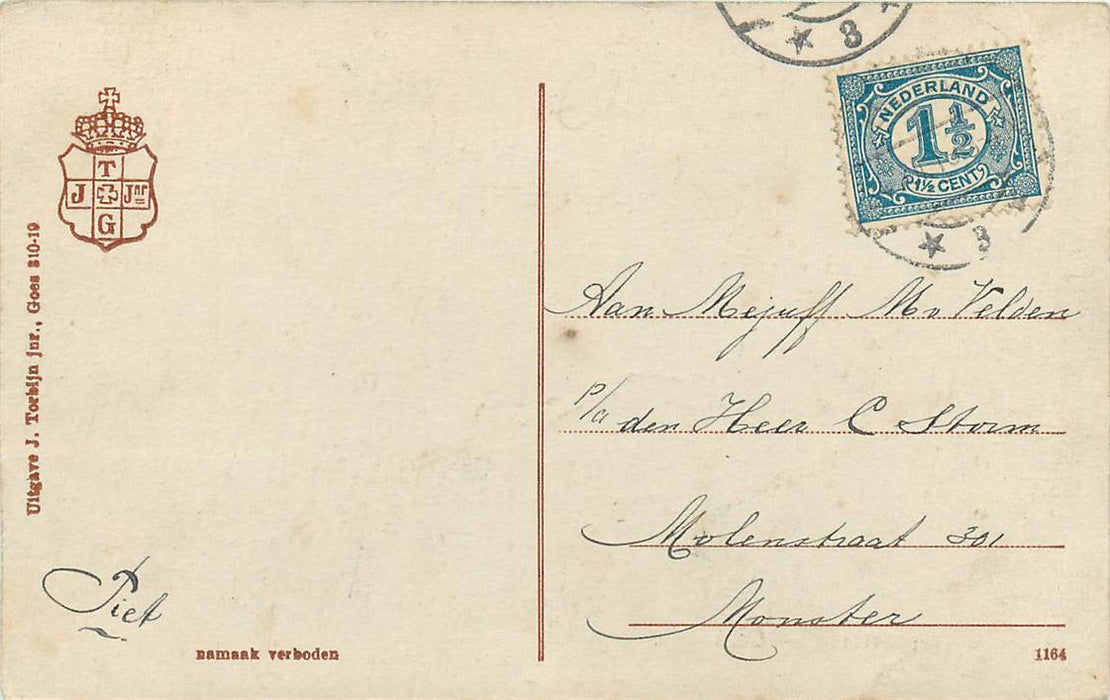 * 3
NEDERLAND
1½
1½ CENT
* 3
T
J Jnr
G
Uitgave J. Torbijn jnr., Goes 310-19
Aan Mejuff M v Velden
p/a den Heer C Storm
Molenstraat 301
Monster
Piet
namaak verboden
1164